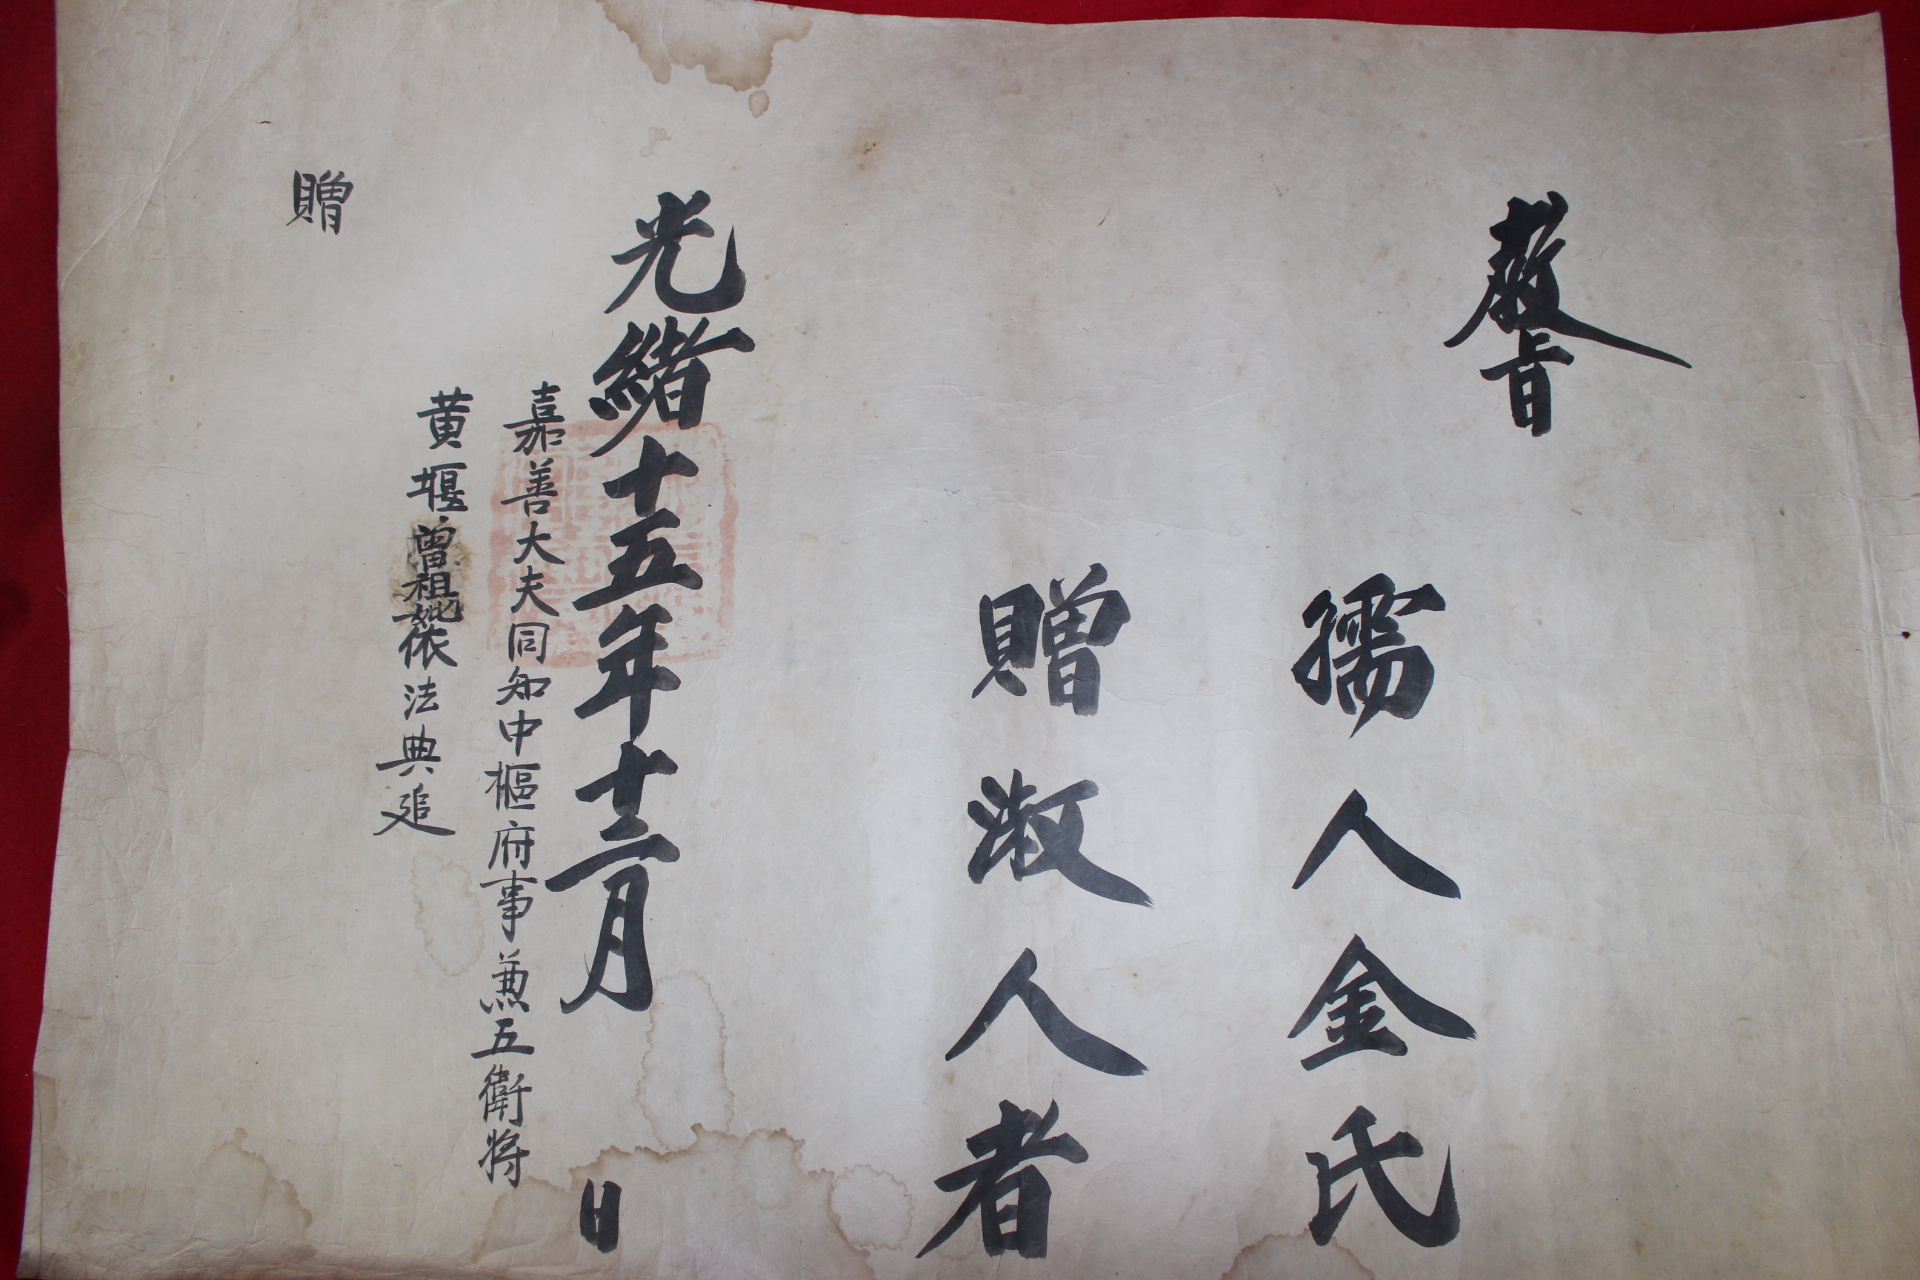 教旨
孺人金氏
贈淑人者
光緒十五年十二月 日
嘉善大夫同知中樞府事兼五衛將
黃堰曾祖妣依法典追
贈